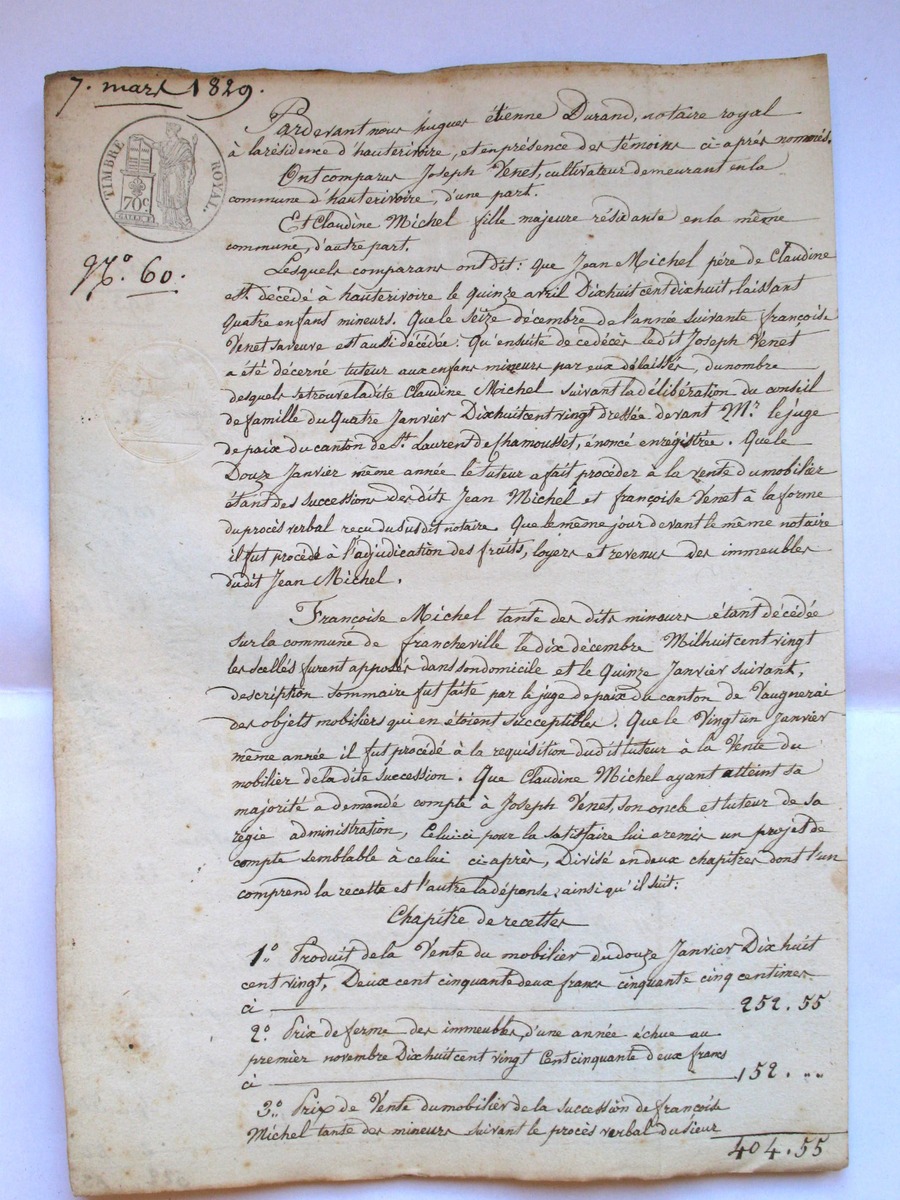 7. mars 1829.
TIMBRE ROYAL.
70c
N.º 60.
Pardevant nous hugues étienne Durand, notaire royal
à la résidence d'hauterivoire, et en présence des témoins ci-après nommés.
Ont comparus Joseph Venet, cultivateur demeurant en la
commune d'hauterivoire, d'une part.
Et Claudine Michel fille majeure résidante en la même
commune, d'autre part.
Lesquels comparans ont dit: que Jean Michel père de Claudine
est décédé à hauterivoire le quinze avril Dixhuit cent dixhuit, laissant
quatre enfans mineurs. Que le seize décembre de l'année suivante françoise
Venet sa veuve est aussi décédée: Qu'ensuite de ce décès le dit Joseph Venet
a été décerné tuteur aux enfans mineurs par eux délaissés, du nombre
desquels se trouve la dite Claudine Michel suivant la délibération du conseil
de famille du quatre Janvier Dixhuit cent vingt dressée devant Mr. le juge
de paix du canton de St. Laurent de Chamousset, énoncé enrégistrée. Que le
Douze Janvier même année le tuteur a fait procéder à la vente du mobilier
étant des successions des dits Jean Michel et françoise Venet à la forme
du procès verbal reçu du susdit notaire. Que le même jour devant le même notaire
il fut procédé à l'adjudication des fruits, loyers et revenus des immeubles
dudit Jean Michel.
Françoise Michel tante des dits mineurs étant décédée
sur la commune de francheville le dix décembre Milhuit cent vingt
les scellés furent apposés dans son domicile et le Quinze Janvier suivant,
description sommaire fut faite par le juge de paix du canton de Vaugnerai
des objets mobiliers qui en étoient succeptibles. Que le Vingt un Janvier
même année il fut procédé à la requisition dudit tuteur à la Vente du
mobilier de la dite succession. Que Claudine Michel ayant atteint sa
majorité a demandé compte à Joseph Venet, son oncle et tuteur de sa
régie administration, Celui-ci pour la satisfaire lui a remis un projet de
compte semblable à celui ci-après, Divisé en deux chapitres dont l'un
comprend la recette et l'autre la dépense, ainsi qu'il suit:
Chapitre de recettes
1.º Produit de la Vente du mobilier du douze Janvier Dix huit
cent vingt, Deux cent cinquante deux francs cinquante cinq centimes
ci 252.55
2.º Prix de ferme des immeubles, d'une année échue au
premier novembre Dixhuit cent vingt Cent cinquante deux francs
ci 152. ""
3.º Prix de Vente du mobilier de la succession de françoise
Michel tante des mineurs suivant le procès verbal du sieur
404.55